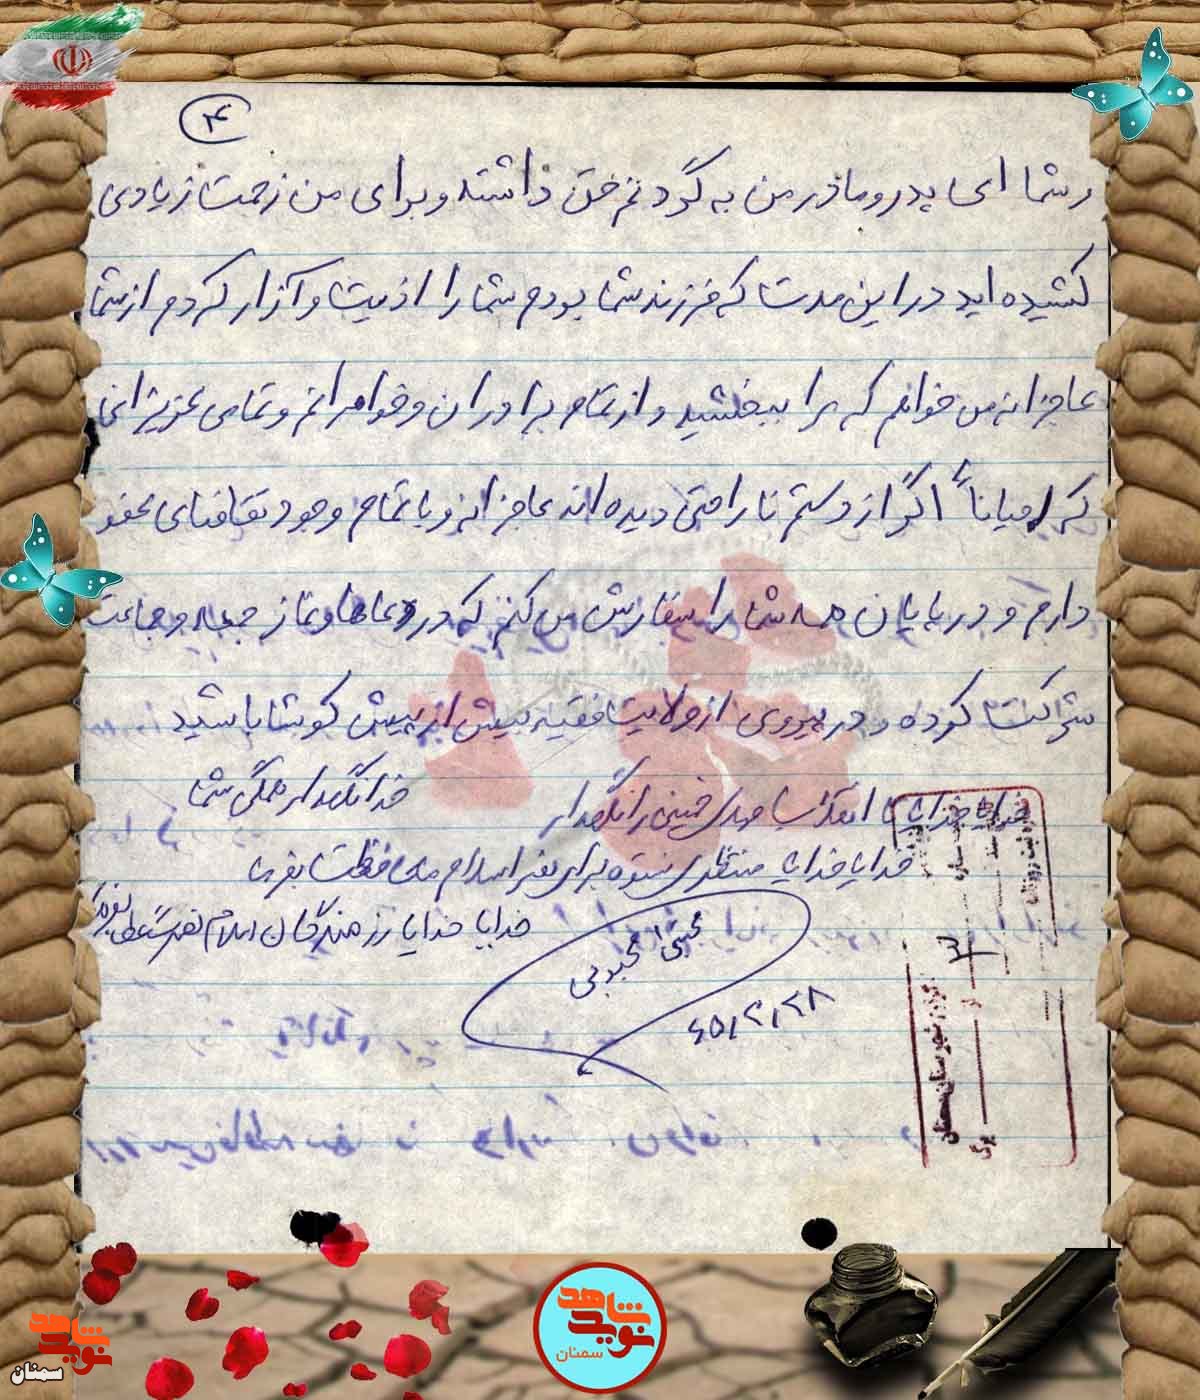 ۴
و شما ای پدر و مادر من به گردنم حق داشته و برای من زحمت زیادی
کشیده اید در این مدت که فرزند شما بودم شما را اذیت و آزار کردم از شما
عاجزانه می خواهم که مرا ببخشید و از تمام برادران و خواهرانم و تمامی عزیزانی
که احیاناً اگر از دستم ناراحتی دیده اند عاجزانه و با تمام وجود تقاضای عفو
دارم و در پایان همه شما را سفارش می کنم که در دعاها و نماز جمعه و جماعت
شرکت کرده و در پیروی از ولایت فقیه بیش از پیش کوشا باشید
خدانگهدار همگی شما
خدایا خدایا تا انقلاب مهدی خمینی را نگهدار
خدایا خدایا منتظری نستوه برای نصر اسلام محافظت بفرما
خدایا خدایا رزمندگان اسلام نصرت عطا بفرما
مجتبی محبوبی
۶۵/۲/۲۸
شهرستان سمنان
برگ
شاهد
نوید
سمنان
شاهد
نوید
سمنان